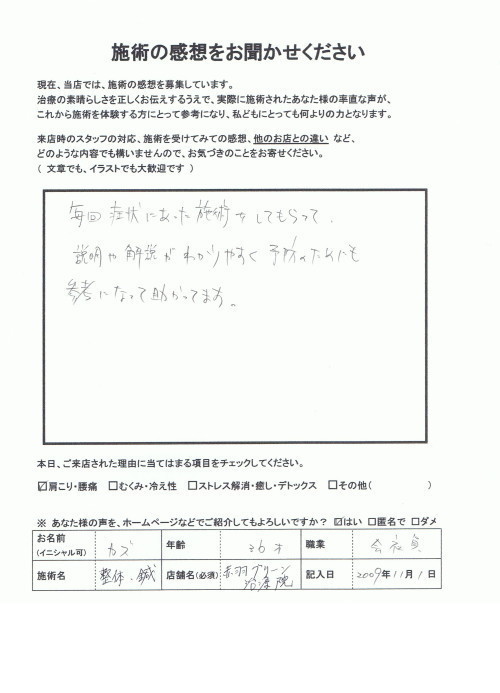 施術の感想をお聞かせください
現在、当店では、施術の感想を募集しています。
治療の素晴らしさを正しくお伝えするうえで、実際に施術されたあなた様の率直な声が、
これから施術を体験する方にとって参考になり、私どもにとっても何よりの力となります。
来店時のスタッフの対応、施術を受けてみての感想、他のお店との違い など、
どのような内容でも構いませんので、お気づきのことをお寄せください。
（ 文章でも、イラストでも大歓迎です ）
毎回 症状にあった施術をしてもらって、
説明や解説がわかりやすく予防のためにも
参考になって助かってます。
本日、ご来店された理由に当てはまる項目をチェックしてください。
☑肩こり・腰痛 □むくみ・冷え性 □ストレス解消・癒し・デトックス □その他（ ）
※ あなた様の声を、ホームページなどでご紹介してもよろしいですか？ ☑はい □匿名で □ダメ
お名前 （イニシャル可） カズ 年齢 36才 職業 会社員
施術名 整体・鍼 店舗名（必須） 赤羽グリーン治療院 記入日 2009年11月1日